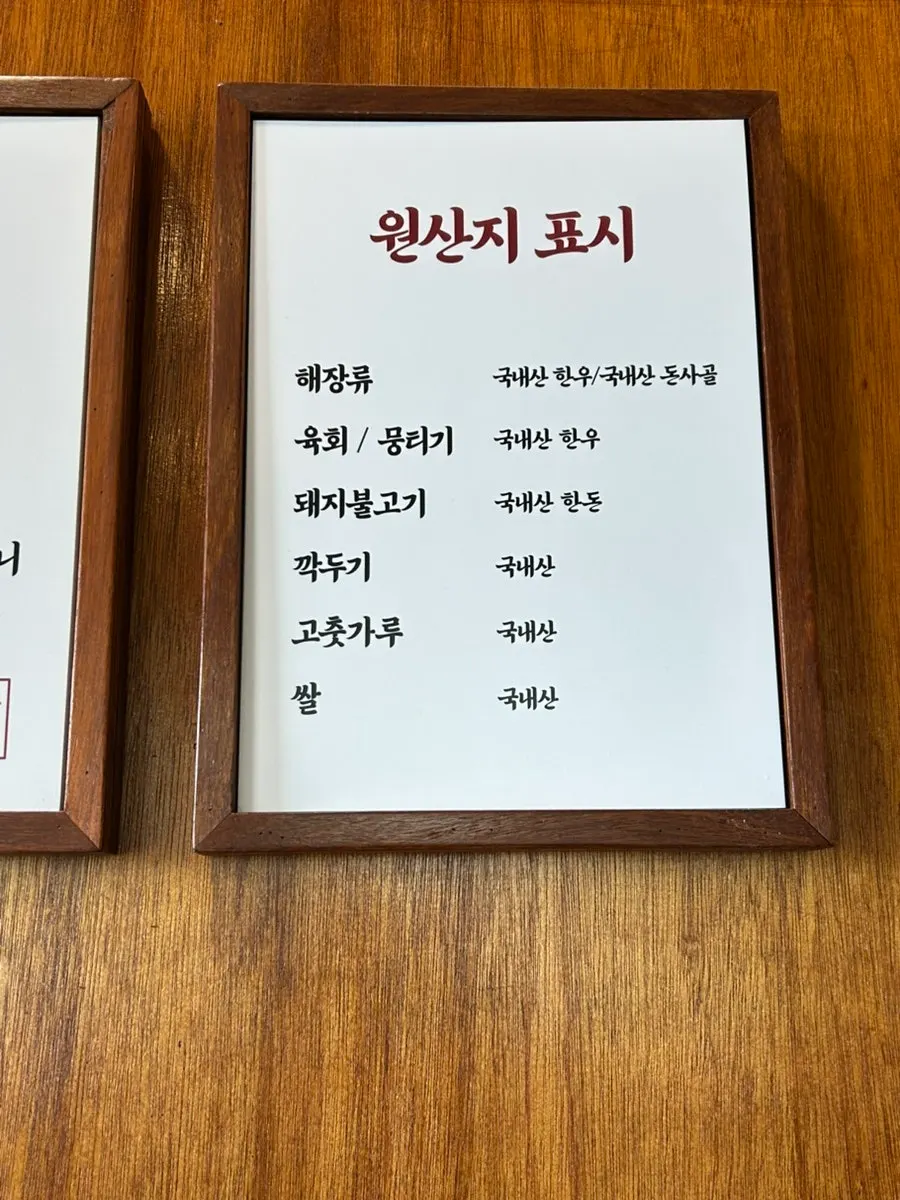 원산지 표시
해장류 국내산 한우/국내산 돈사골
육회 / 뭉티기 국내산 한우
돼지불고기 국내산 한돈
깍두기 국내산
고춧가루 국내산
쌀 국내산
니